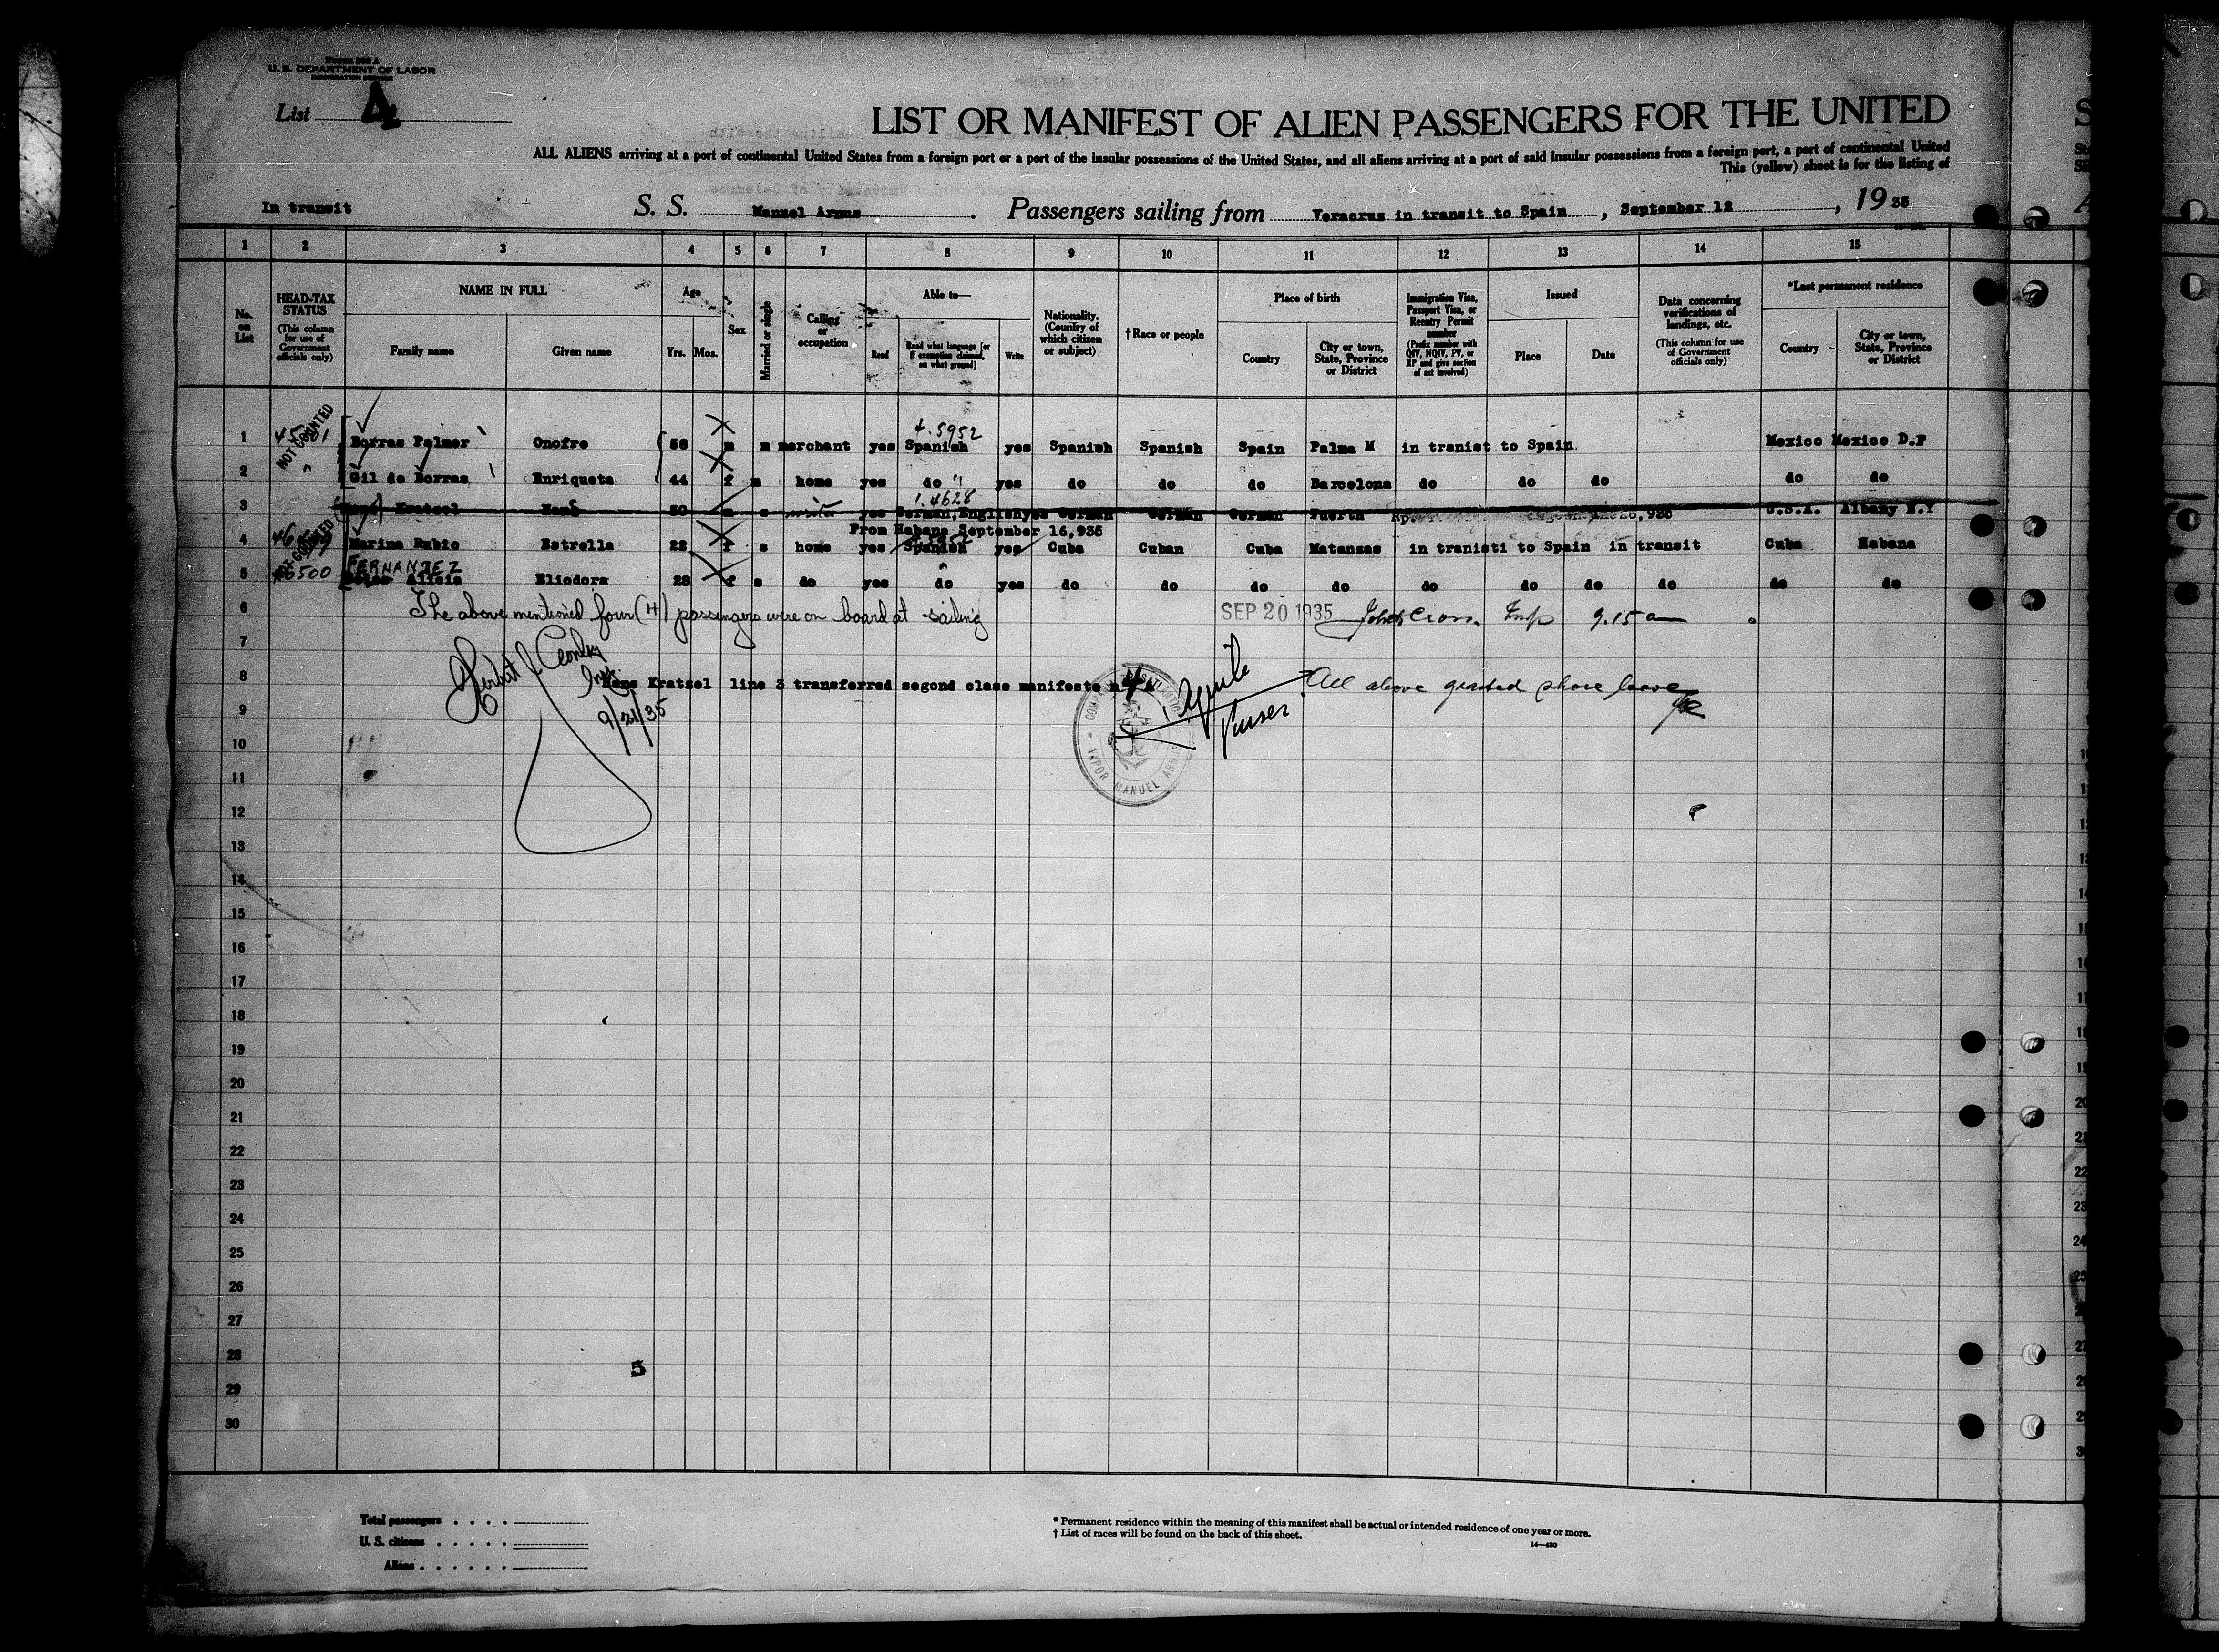 Form 500 A
U. S. DEPARTMENT OF LABOR
IMMIGRATION SERVICE
List 4
LIST OR MANIFEST OF ALIEN PASSENGERS FOR THE UNITED
ALL ALIENS arriving at a port of continental United States from a foreign port or a port of the insular possessions of the United States, and all aliens arriving at a port of said insular possessions from a foreign port, a port of continental United
This (yellow) sheet is for the listing of
In transit S. S. Manuel Arnus. Passengers sailing from Veracruz in transit to Spain, September 12, 1935
1 2 3 4 5 6 7 8 9 10 11 12 13 14 15
No. on List
HEAD-TAX STATUS (This column for use of Government officials only)
NAME IN FULL
Family name Given name
Age
Yrs. Mos.
Sex
Married or single
Calling or occupation
Able to—
Read Read what language [or if exemption claimed, on what ground] Write
Nationality. (Country of which citizen or subject)
†Race or people
Place of birth
Country City or town, State, Province or District
Immigration Visa, Passport Visa, or Reentry Permit number (Prefix number with QIV, NQIV, PV, or RP and give section of act involved)
Issued
Place Date
Data concerning verifications of landings, etc. (This column for use of Government officials only)
*Last permanent residence
Country City or town, State, Province or District
NOT COUNTED
4.5952
1 Borras Palmer Onofre 58 m m merchant yes Spanish yes Spanish Spanish Spain Palma M in tranist to Spain. Mexico Mexico D.F
2 " Gil de Borras Enriqueta 44 f m home yes do " yes do do do Barcelona do do do do do
1.4628
3 Kratzel Hans 50 m s writer yes German,English yes German German German Fuerth U.S.A. Albany N.Y
From Habana September 16,935
4 Marina Rubio Estrella 22 f s home yes Spanish yes Cuba Cuban Cuba Matanzas in tranisti to Spain in transit Cuba Habana
FERNANDEZ
5 Alicia Eliodora 28 f s do yes do yes do do do do do do do do do do
6 The above mentioned four (4) passengers were on board at sailing SEP 20 1935 Insp 9.15 a
7
8 Hans Kratzel line 3 transferred segond clase manifeste All above granted shore leave
Insp.
9/21/35
Purser
VAPOR MANUEL ARNUS
9
10
11
12
13
14
15
16
17
18
19
20
21
22
23
24
25
26
27
28 5
29
30
Total passengers . . . .
U. S. citizens . . . . .
Aliens . . . . . .
* Permanent residence within the meaning of this manifest shall be actual or intended residence of one year or more.
† List of races will be found on the back of this sheet.
14—430